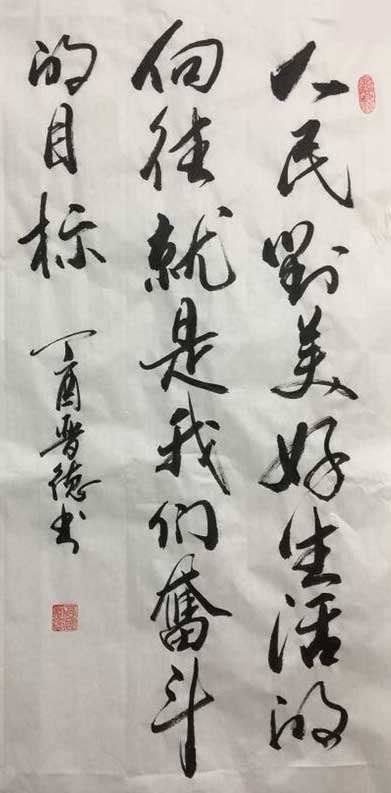 人民對美好生活的
向往就是我们奮斗
的目标
丁酉晋德书